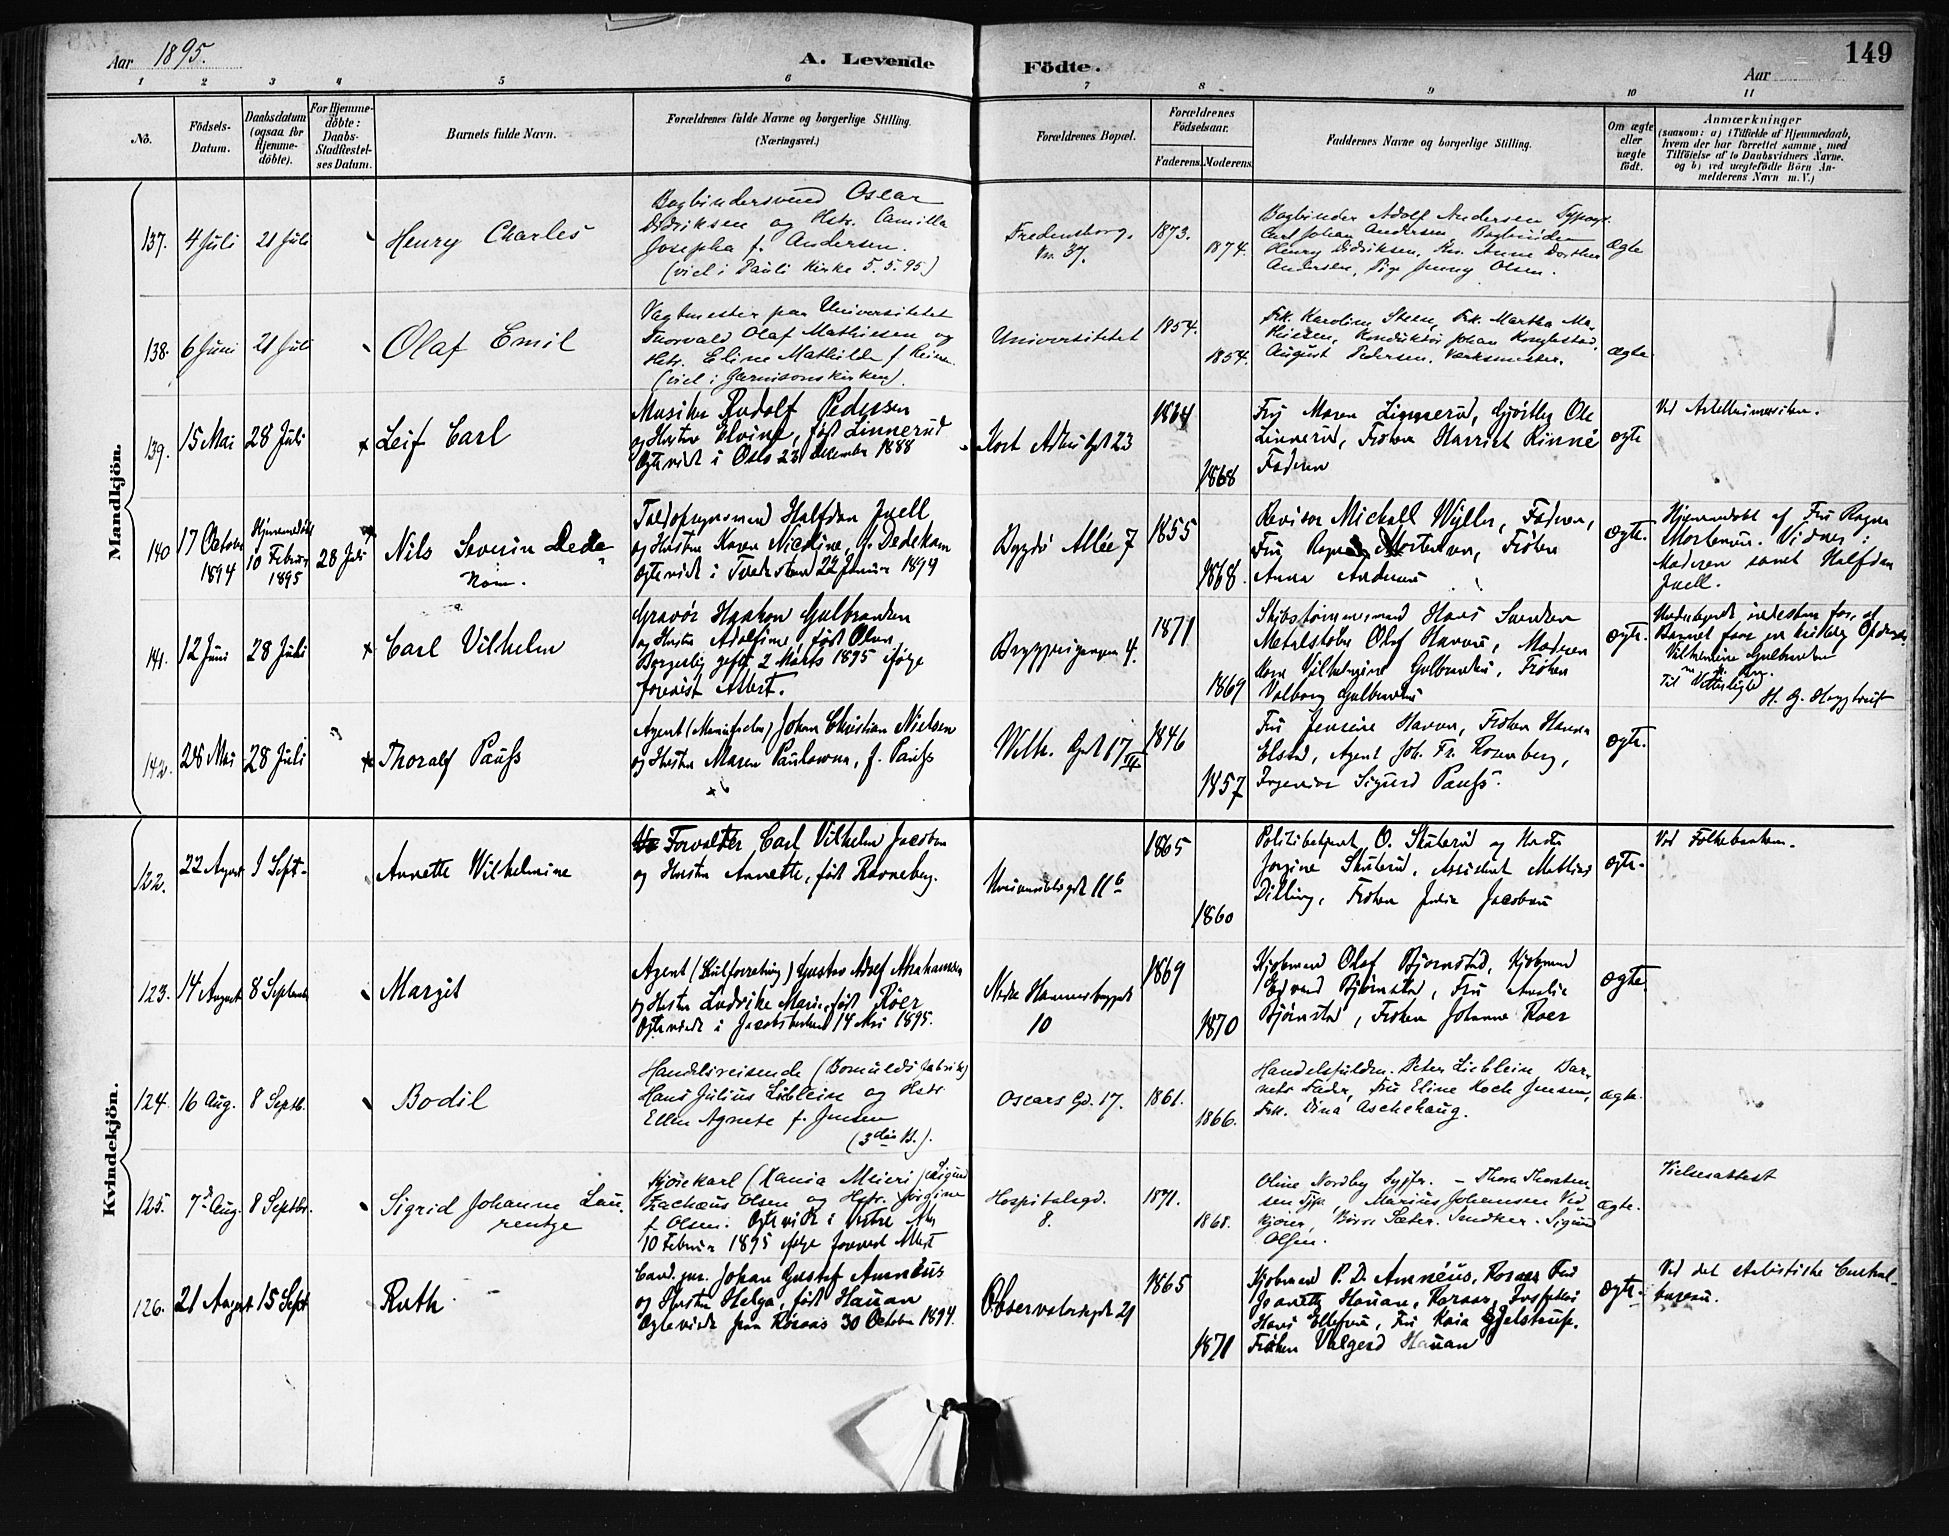 Aar 1895.
A. Levende
Födte.
Aar
149
1 2 3 4 5 6 7 8 9 10 11
No.
Födsels-
Datum.
Daabsdatum
(ogsaa for
Hjemme-
döbte).
For Hjemme-
döbte:
Daabs-
Stadfæstel-
ses Datum.
Barnets fulde Navn.
Forældrenes fulde Navne og borgerlige Stilling.
(Næringsvei.)
Forældrenes Bopæl.
Forældrenes
Födselsaar.
Faderens.
Moderens.
Faddernes Navne og borgerlige Stilling.
Om ægte
eller
uægte
födt.
Anmærkninger
(saasom: a) i Tilfælde af Hjemmedaab,
hvem der har forrettet samme, med
Tilföielse af to Daabsvidners Navne.
og b) ved uægtefödte Börn An-
melderens Navn m.V.)
Mandkjön.
137. 4 Juli 21 Juli
Henry Charles
Bogbindersvend Oscar
Didriksen og Hstr. Camilla
Josepha f. Andersen.
(viet i Pauli Kirke 5.5.95)
Fredensborg.
37.
1873.
1874.
Bogbinder Adolf Andersen Typogr.
Carl Johan Andersen Bogbinder
Henry Didriksen, Anne Dorthea
Andersen, Pige Jenny Olsen.
ægte
138. 6 Juni 21 Juli
Olaf Emil
Vagtmester paa Universitetet
Thorvald Olaf Mathiesen og
Hstr. Eline Mathilde f.
(viet i Garnisonskirken).
Universitetet
1854.
1854.
Frk. Karoline Steen, Frk. Martha Ma-
thiesen, Konduktör Johan
August Pedersen, Værksmester.
ægte
139. 15 Mai 28 Juli
Leif Carl
Musiker Rudolf Pedersen
og Hustru Elvine, födt Linnerud
Ægteviet i Oslo 23 December 1888
Kort Adlers Gt 23
1864
1868
Fru Maren Linnerud, Ole
Linnerud, Fröken Harriet Rinne
Faderen
ægte
Ved
140 17 October
1894
Hjemmedöbt
10 Februar
1895
28 Juli
Nils Severin Dede-
kam.
Toldopsynsmand Halfdan Juell
og Hustru Karen Nicoline, f. Dedekam
Ægteviet i Tvedestrand 22 Januar 1894
Bygdö Allée 7
1855
1868.
Revisor Michall Wyller, Faderen,
Fru Ragna Mortensen, Fröken
Anna Andersen
ægte.
Hjemmedöbt af Fru Ragna
Mortensen. Vidner:
Moderen samt Halfdan
Juell.
141. 12 Juni 28 Juli
Carl Vilhelm
Gravör Haakon Gulbrandsen
og Hustru Adolfine, födt Olsen
Borgerlig gift, 2 Marts 1895 ifölge
forevist Attest.
Bryggerigangen 4.
1871
1869
Skibstömmermand Hans
Metalstöber Olaf Moderen
Vilhelmine Gulbrandsen, Fröken
Valborg Gulbrandsen
ægte.
Vilhelmine Gulbrandsen
Til Vitterlighed
142. 28 Mai 28 Juli
Thoralf Pauss
Agent Johan Christian Nielsen
og Hustru Maren Paulowna, f. Pauss
Vilh. Gt 17 III
1846
1857
Fru Fröken Hanna
Elstad, Agent Joh. Fr. Rosenberg,
Ingeniör Sigurd Pauss.
ægte.
Kvindekjön.
122. 22 August 1 Sept.
Annette Vilhelmine
Forvalter Carl Vilhelm Jacobsen
og Hustru Annette, födt Ravneberg.
Universitetsgt 11 b
1865
1860
Politibetjent O. Skuterud og Hustru
Jorgine Skuterud, Assistent Mathias
Dilling, Fröken Julie Jacobsen
ægte.
Ved Folkebanken.
123. 14 August 8 September
Margit
Agent Gustav Adolf Abrahamsen
og Hustru Ludvike Marie, födt Röer
Ægteviet i Jacobskirken 14 Mai 1895.
Nedre Hammersborggt
10
1869
1870
Kjöbmand Olaf Björnstad, Kjöbmand
Edvard Björnstad, Fru Amalie
Björnstad, Fröken Johanne Roer
ægte.
124. 16 Aug. 8 Septb.
Bodil
Handelsreisende (Bomuldsfabrik)
Hans Julius Lieblein og Hstr.
Ellen Agnete f. Jensen
(3die B.).
Oscars Gd. 17.
1861.
1866.
Handelsfuldm. Peter Lieblein, Bar-
nets Fader, Fru Eline Koch Jensen,
Frk. Dina Aschehoug.
ægte.
125. 7de Aug. 8 Septbr.
Sigrid Johanne Lau-
rentze
Kjörekarl (Kania Meieri) Sigurd
Zachæus Olsen og Hstr. Jörgine
f. Olsen. Ægteviet i Vestre Aker
10 Februar 1895 ifölge forevist Attest
Hospitalsgd.
8.
1871.
1868.
Oline Nordby Syjfr. – Thora Thorsten-
sen Pige, Marius Johansen Ved-
kjörer, Sæter. Snedker. Sigurd
Olsen.
ægte.
Vielsesattest
126. 21 August 15 Sept
Ruth
Cand. jur. Johan Gustaf Amnéus
og Hustru Helga, födt Hauan
Ægteviet paa Röraas 30 October 1894.
Observatoriegt 21
1865
1871
Kjöbmand P. D. Amnéus, Roraas, Fru
Jeanette Hauan, Roraas,
Hans Ellefsen, Fru Kaia Gjelstrup.
Fröken Valgerd Hauan
ægte.
Ved det statistiske Central-
bureau.